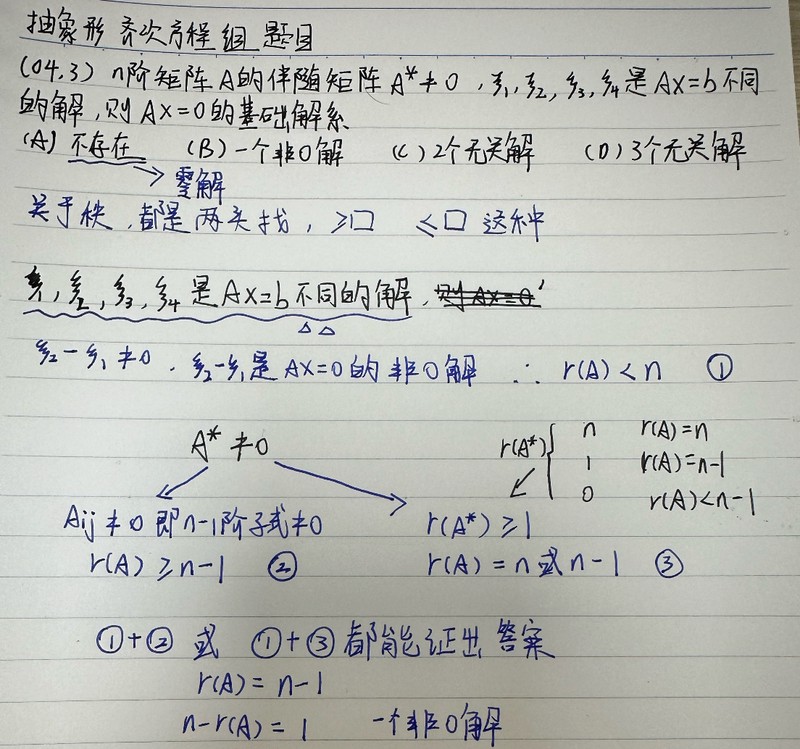 抽象形 齐次方程组 题目
(04,3) n阶矩阵A的伴随矩阵 A*≠0，ξ₁,ξ₂,ξ₃,ξ₄是AX=b不同
的解,则AX=0的基础解系
(A) 不存在 (B) 一个非0解 (C) 2个无关解 (D) 3个无关解
零解
关于秩,都是两头找, ≥□ ≤□ 这种
ξ₁,ξ₂,ξ₃,ξ₄是AX=b不同的解, 则AX=0
ξ₂-ξ₁≠0. ξ₂-ξ₁是AX=0的非0解 ∴ r(A)<n ①
A*≠0
r(A*) { n r(A)=n
1 r(A)=n-1
0 r(A)<n-1
Aij≠0 即n-1阶子式≠0
r(A*)≥1
r(A)≥n-1 ②
r(A)=n或n-1 ③
①+② 或 ①+③ 都能证出答案
r(A)=n-1
n-r(A)=1 一个非0解